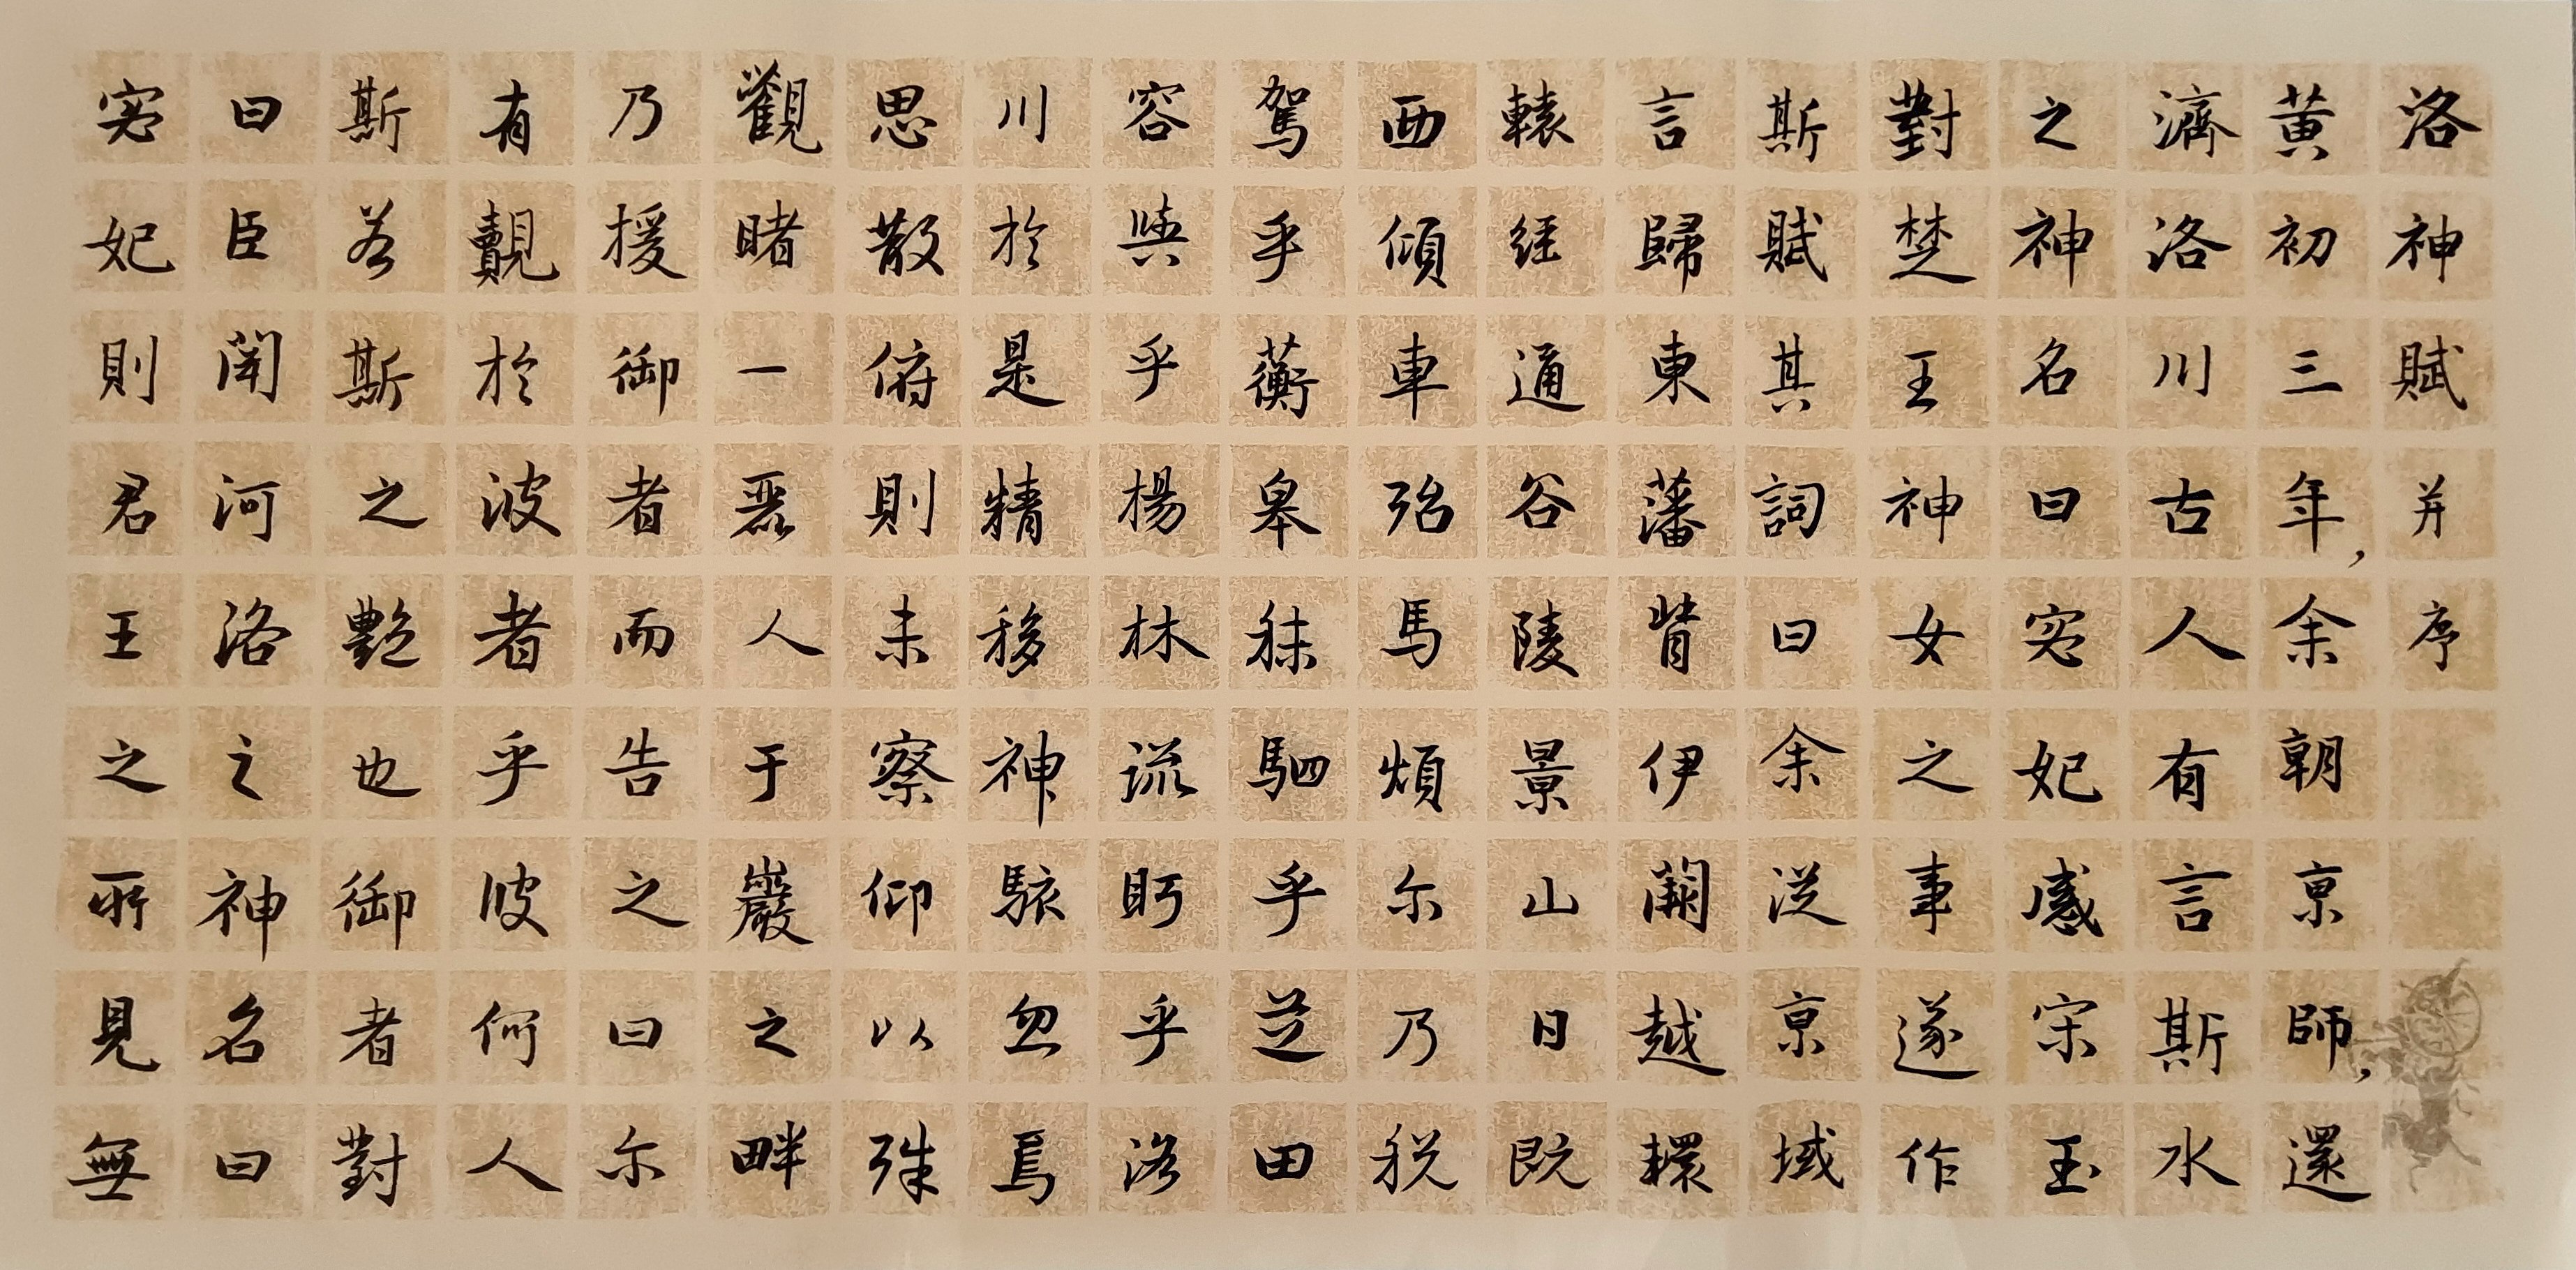 洛神賦并序
黄初三年，余朝京師，還
濟洛川古人有言斯水
之神名曰宓妃感宋玉
對楚王神女之事遂作
斯賦其詞曰余從京域
言歸東藩背伊闕越轘
轅經通谷陵景山日既
西傾車殆馬煩尓乃税
駕乎蘅皋秣駟乎芝田
容與乎楊林流眄乎洛
川於是精移神駭忽焉
思散俯則未察仰以殊
觀睹一麗人于巖之畔
乃援御者而告之曰尓
有覿於彼者乎彼何人
斯若斯之艶也御者對
曰臣聞河洛之神名曰
宓妃則君王之所見無